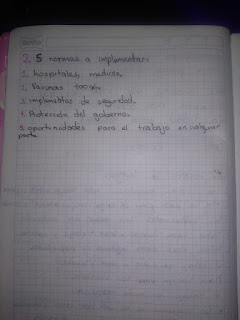 2. 5 normas a implementar:
1. hospitales, medicos,
2. Vacunas
3. implementos de seguridad.
4. Protección del gobierno.
5. oportunidades para el trabajo en cualquier
parte